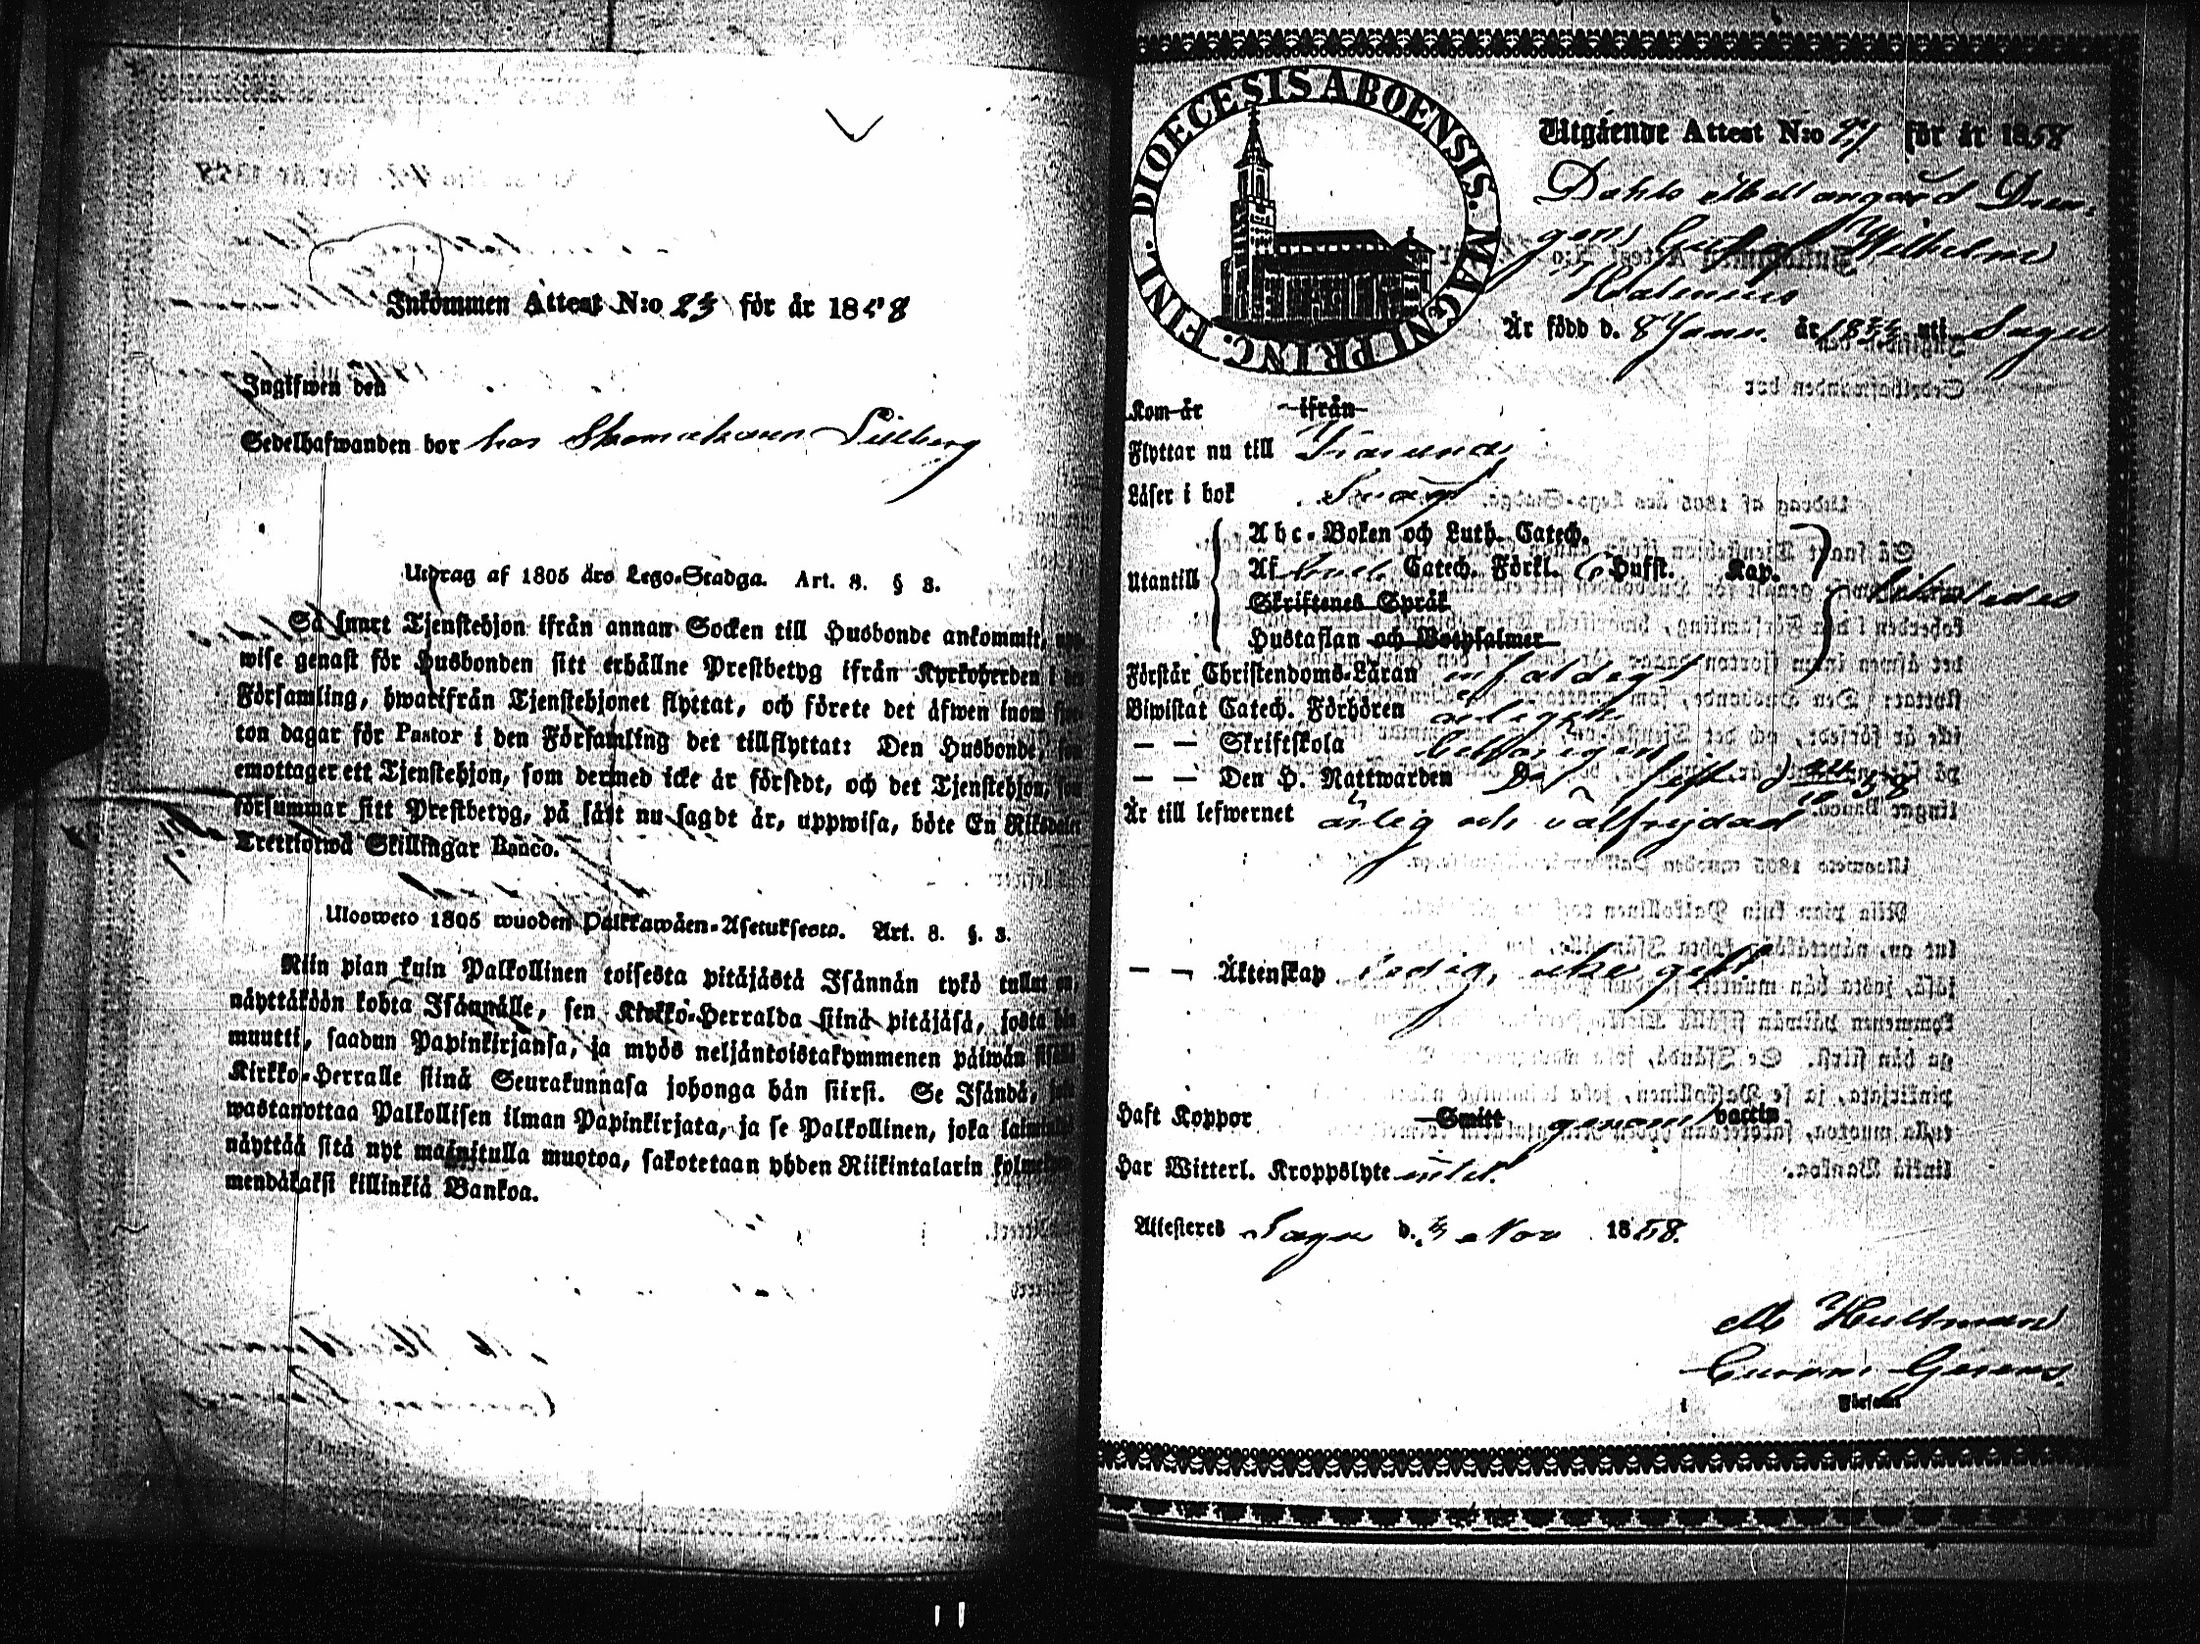 Inkommen Attest N:o 23 för år 1858
Ingifwen den
Sedelhafwanden bor hos Skomakaren Lillberg
Utdrag af 1805 års Lego-Stadga. Art. 8. § 3.
Så snart Tjenstehjon ifrån annan Socken till Husbonde ankommit,
wise genast för Husbonden sitt erhållne Prestbetyg ifrån Kyrkoherden i
Församling, hwarifrån Tjenstehjonet flyttat, och förete det äfwen inom
ton dagar för Pastor i den Församling det tillflyttat: Den Husbonde,
emottager ett Tjenstehjon, som dermed icke är försedt, och det Tjenstehjon,
försummar sitt Prestbetyg, på sätt nu sagdt är, uppwisa, böte En Riksdaler
Trettiotwå Skillingar Banco.
Ulosweto 1805 wuoden Palkkawäen-Asetuksesta. Art. 8. §. 3.
Niin pian kuin Palkollinen toisesta pitäjästä Isännän tykö tullut on,
näyttäköön kohta Isännälle, sen Kirkko-Herralda siinä pitäjäsä, josta hän
muutti, saadun Papinkirjansa, ja myös neljäntoistakymmenen päiwän sisällä
Kirkko-Herralle siinä Seurakunnasa johonga hän siirsi. Se Isändä,
wastanottaa Palkollisen ilman Papinkirjata, ja se Palkollinen, joka
näyttää sitä nyt mainitulla muotoa, sakotetaan yhden Riikintalarin
mendäkaksi killinkiä Bankoa.
DIOECESIS ABOENSIS. MAGNI PRINC. FINL.
Utgående Attest N:o för år 1858
Dahls Mellangård Dren-
gen, Gustaf Wilhelm
Är född d. 8 Janr. år 1833 uti Sagu
Kom år ifrån
Flyttar nu till
Läser i bok Swagt
Utantill
Abc-Boken och Luth. Catech.
Af Catech. Förkl. 6 Hufst. Kap.
Skriftenes Språk
Hustaflan och Botpsalmer
Förstår Christendoms-Läran enfaldigt
Biwistat Catech. Förhören årligen
— — Skriftskola
— — Den H. Nattwarden
Är till lefwernet ärlig och välfrejdad
— — Äktenskap Ledig, icke gift
Haft Koppor Smitt genom vaccin
Har Witterl. Kroppslyte intet.
Attesteres Sagu d. 3 Nov 1858.
M Hultman
Curam Gerens.
i Församl
11